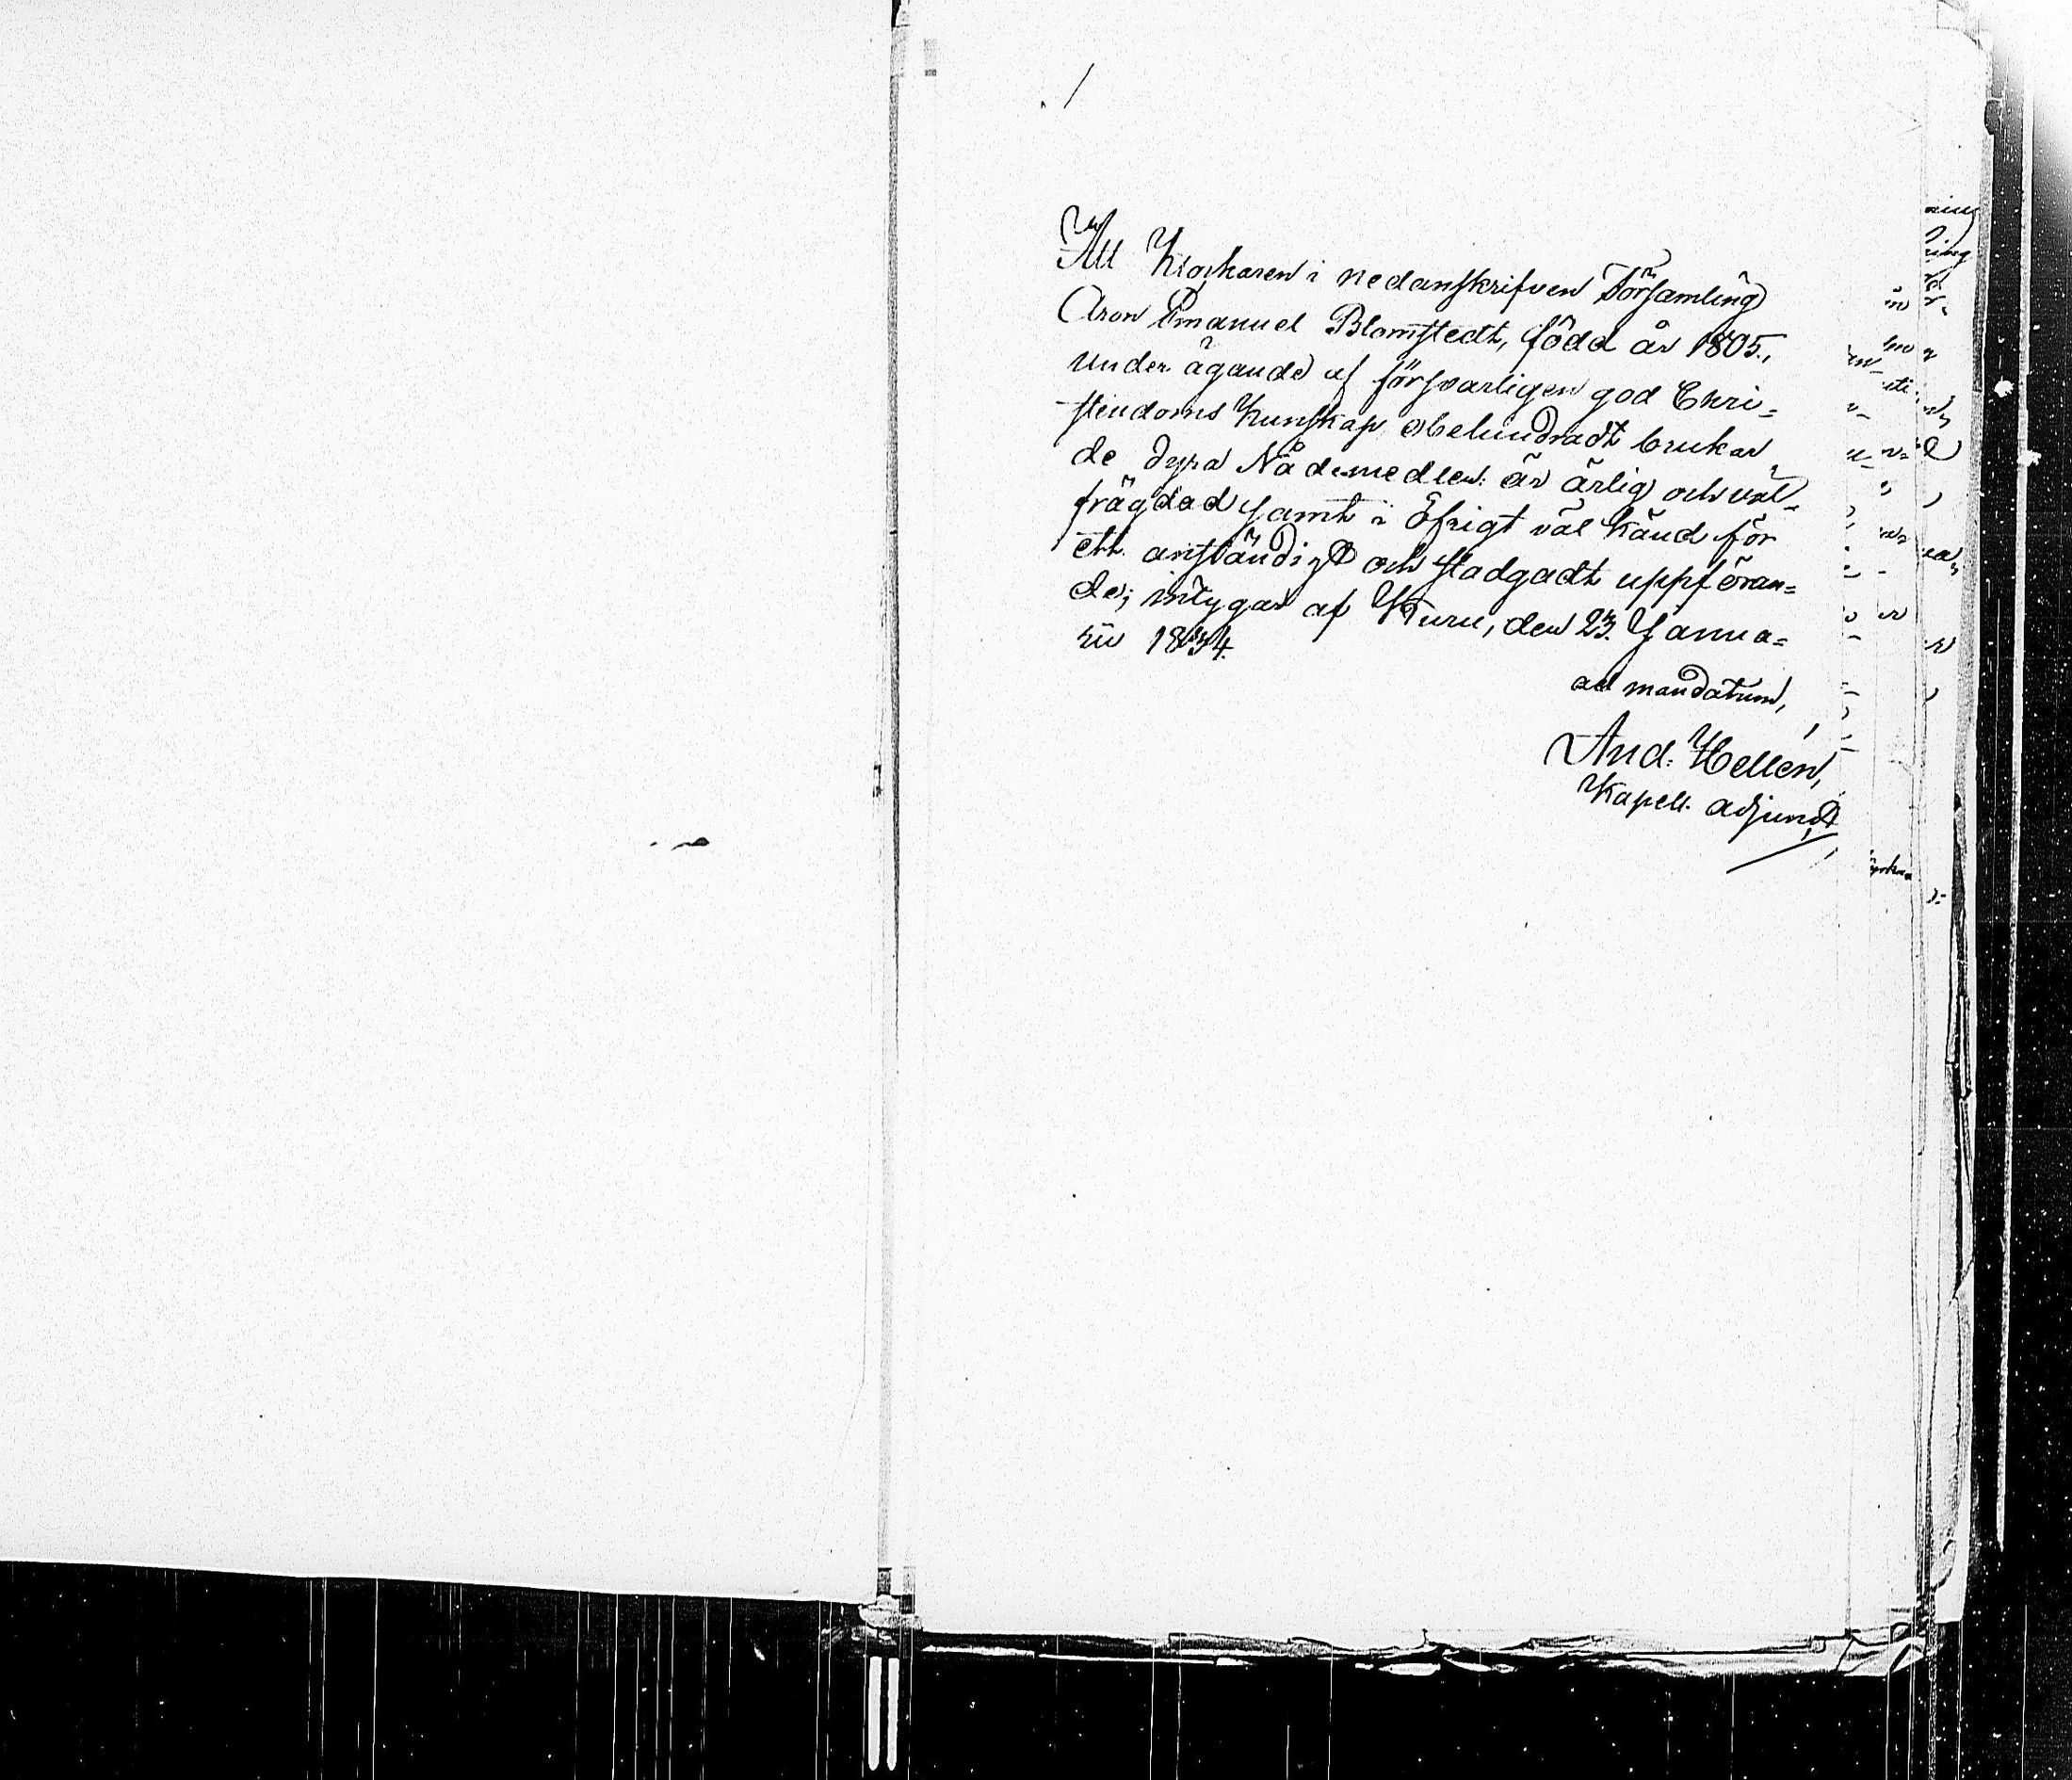 Att Klockaren i nedanskrifven Församling
Aron Emanuel Blomstedt, född år 1805.,
under ägande af försvarligen god Chri=
stendoms Kunskap obehindradt brukar
de dyra Nådemedlen: är ärlig och väl
frägdad samt i Öfrigt väl känd för
ett anständigt och stadgadt uppföran=
de; intygar af Kuru, den 23. Janua=
rii 1834.
ad mandatum,
And. Hellén,
Kapell. adjunct